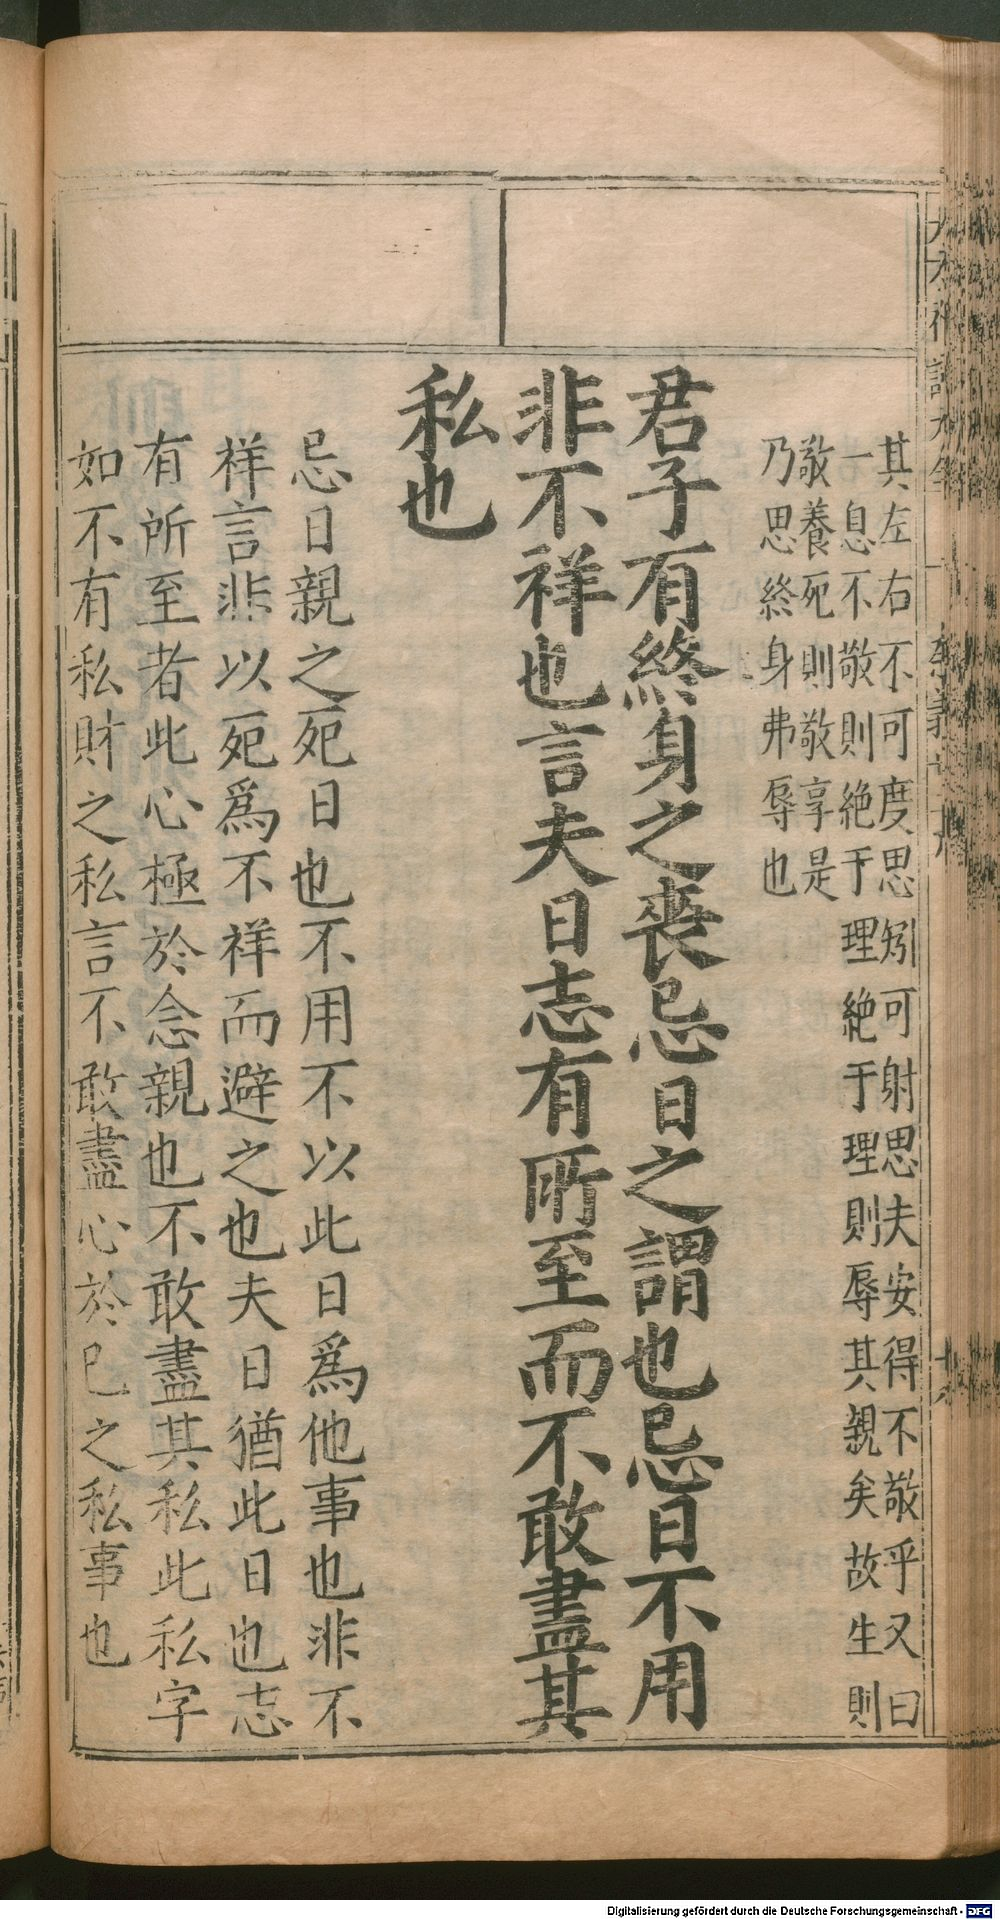 其左右不可度思矧可射思夫安得不敬乎又曰
一息不敬則絶于理絶于理則辱其親矣故生則
敬養死則敬享是
乃思終身弗辱也
君子有終身之喪忌日之謂也忌日不用
非不祥也言夫日志有所至而不敢盡其
私也
忌日親之死日也不用不以此日爲他事也非不
祥言非以死爲不祥而避之也夫日猶此日也志
有所至者此心極於念親也不敢盡其私此私字
如不有私財之私言不敢盡心於已之私事也
Digitalisierung gefördert durch die Deutsche Forschungsgemeinschaft - DFG